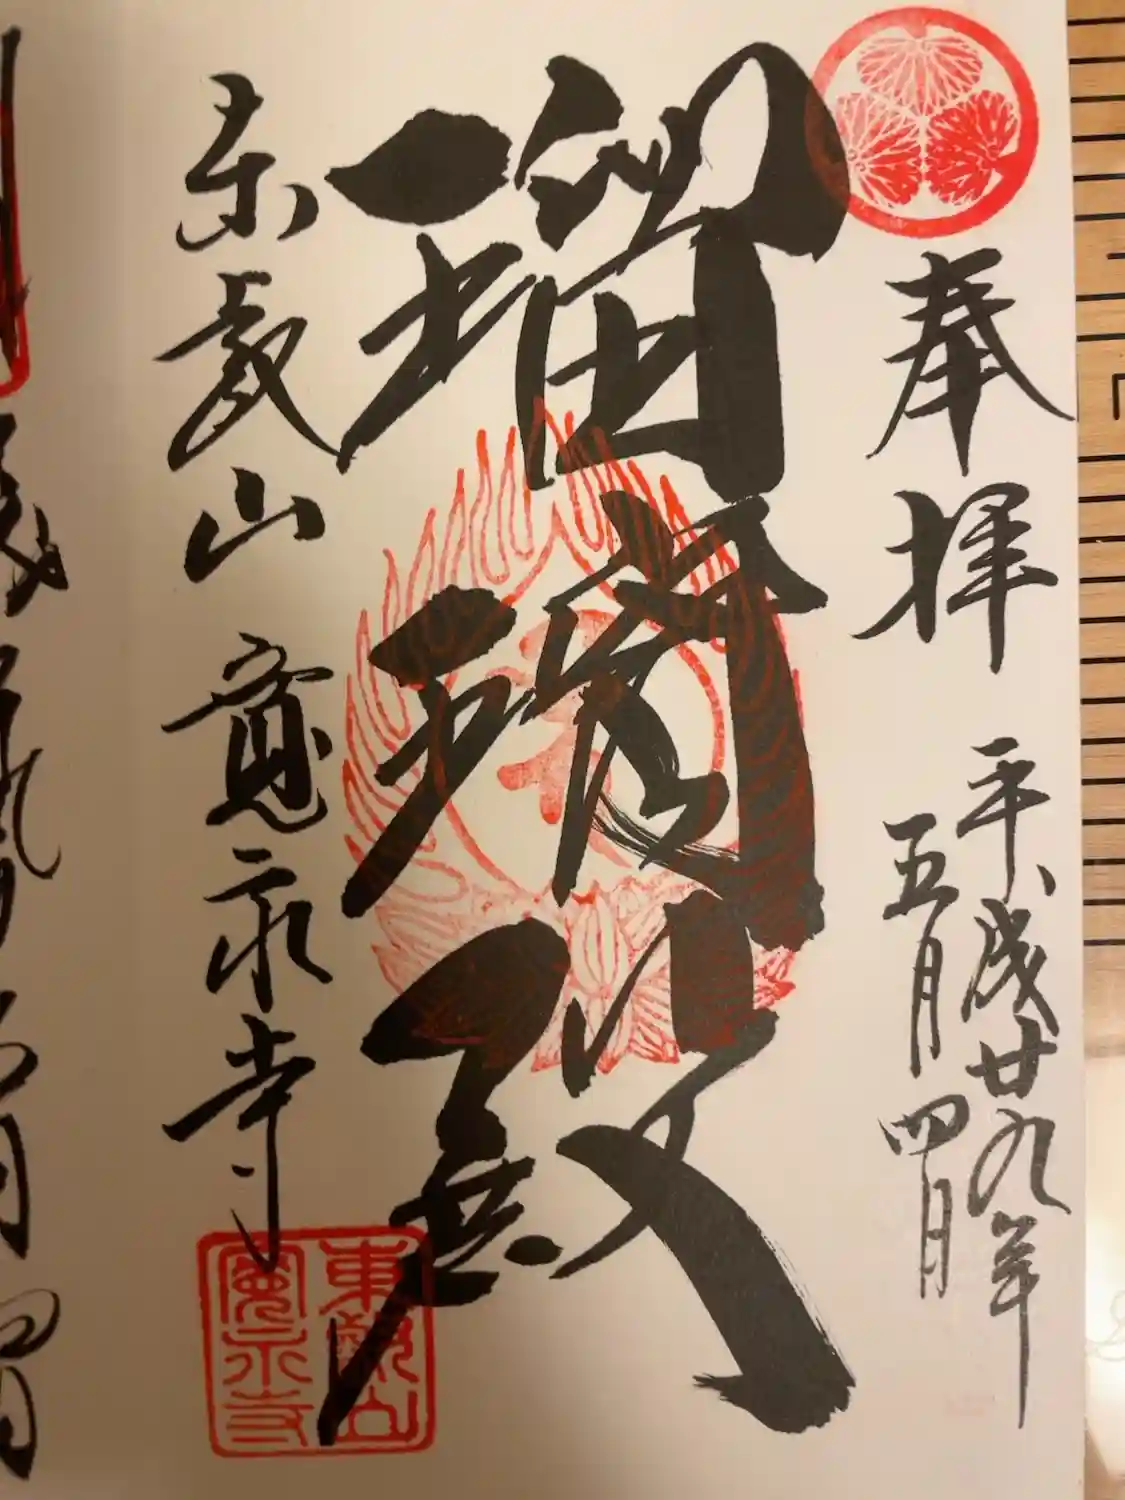 奉拝
平成廿九年
五月四日
瑠璃殿
東叡山 寛永寺
東叡山
寛永寺